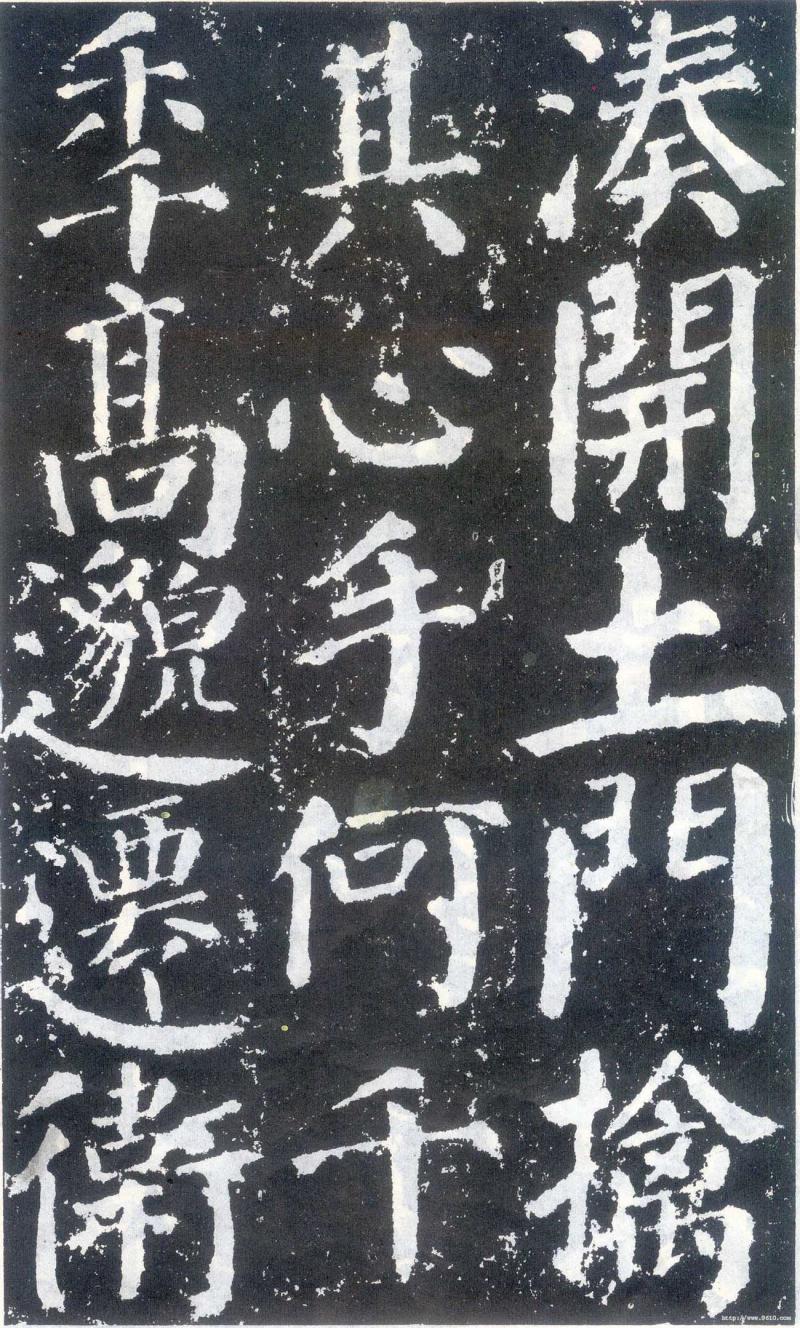 湊開土門擒
其心手何千
秊髙邈遷衛
http://www.9610.com